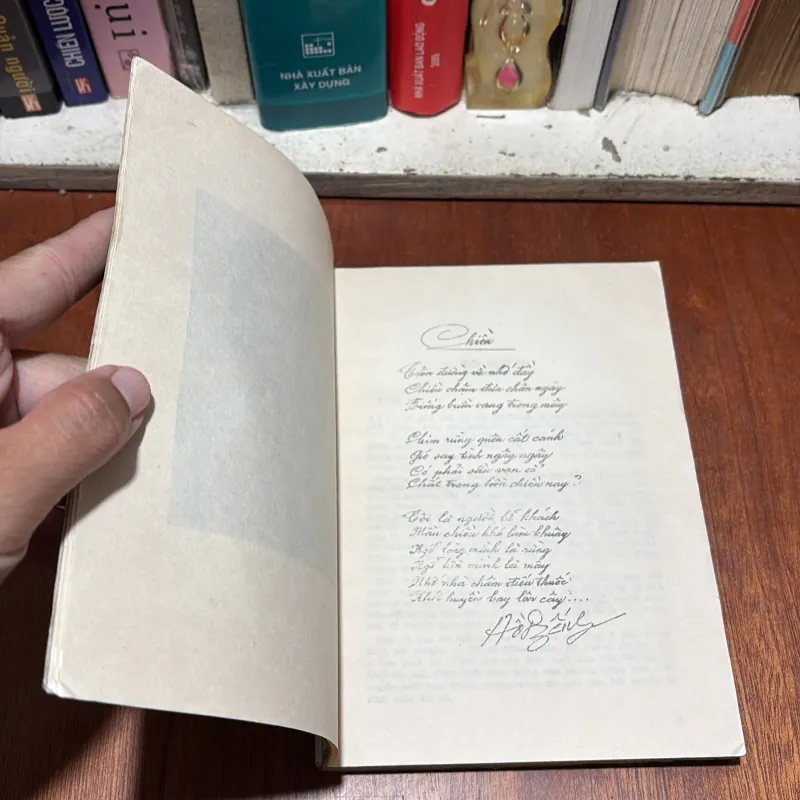 Quân người
CHIẾN LƯỢC
ụi
NHÀ XUẤT BẢN
XÂY DỰNG
NHÀ XUẤT BẢN LAO ĐỘNG
Chiều
Trên đường về nhớ đầy
Chiều chậm đưa chân ngày
Tiếng buồn vang trong mây
Chim rừng quên cất cánh
Gió say tình ngây ngây
Có phải sầu vạn cổ
Chất trong hồn chiều nay ?
Tôi là người lữ khách
Màu chiều khó làm khuây
Ngỡ lòng mình là rừng
Ngỡ hồn mình là mây
Nhớ nhà châm điếu thuốc
Khói huyền bay lên cây....
Hồ Dzếnh